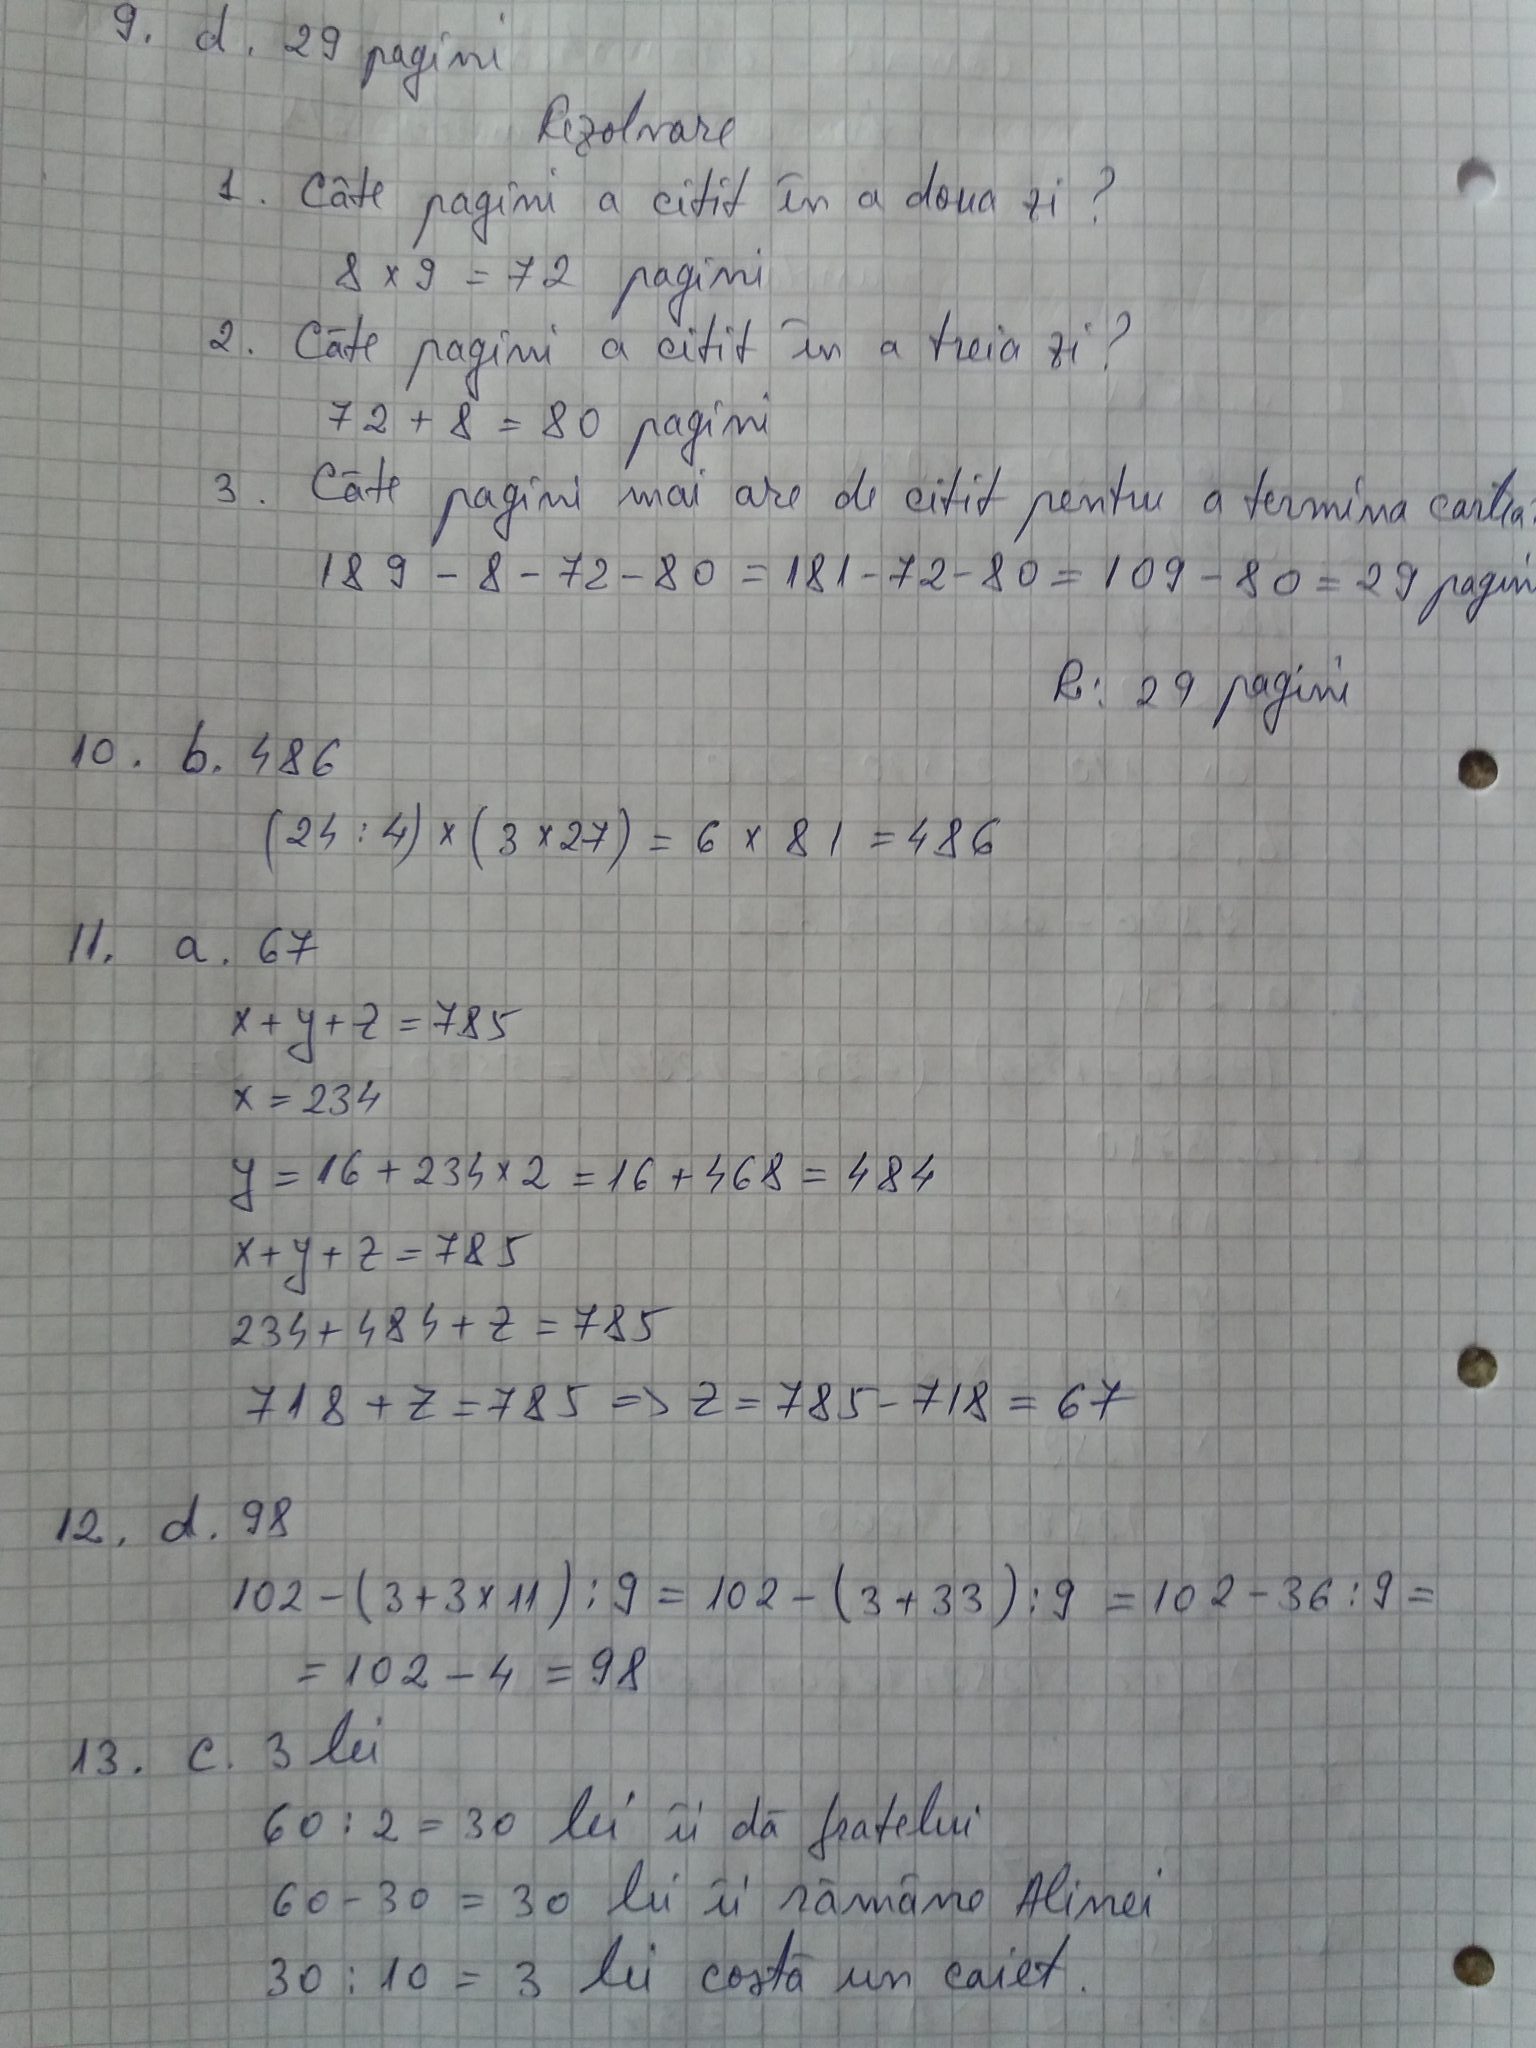 9. d. 29 pagini
Rezolvare
1. Câte pagini a citit în a doua zi?
8 x 9 = 72 pagini
2. Câte pagini a citit în a treia zi?
72 + 8 = 80 pagini
3. Câte pagini mai are de citit pentru a termina cartea?
189 - 8 - 72 - 80 = 181 - 72 - 80 = 109 - 80 = 29 pagini
R: 29 pagini
10. b. 486
(24 : 4) x (3 x 27) = 6 x 81 = 486
11. a. 67
x + y + z = 785
x = 234
y = 16 + 234 x 2 = 16 + 468 = 484
x + y + z = 785
234 + 484 + z = 785
718 + z = 785 => z = 785 - 718 = 67
12. d. 98
102 - (3 + 3 x 11) : 9 = 102 - (3 + 33) : 9 = 102 - 36 : 9 =
= 102 - 4 = 98
13. c. 3 lei
60 : 2 = 30 lei îi dă fratelui
60 - 30 = 30 lei îi rămâne Alinei
30 : 10 = 3 lei costă un caiet.